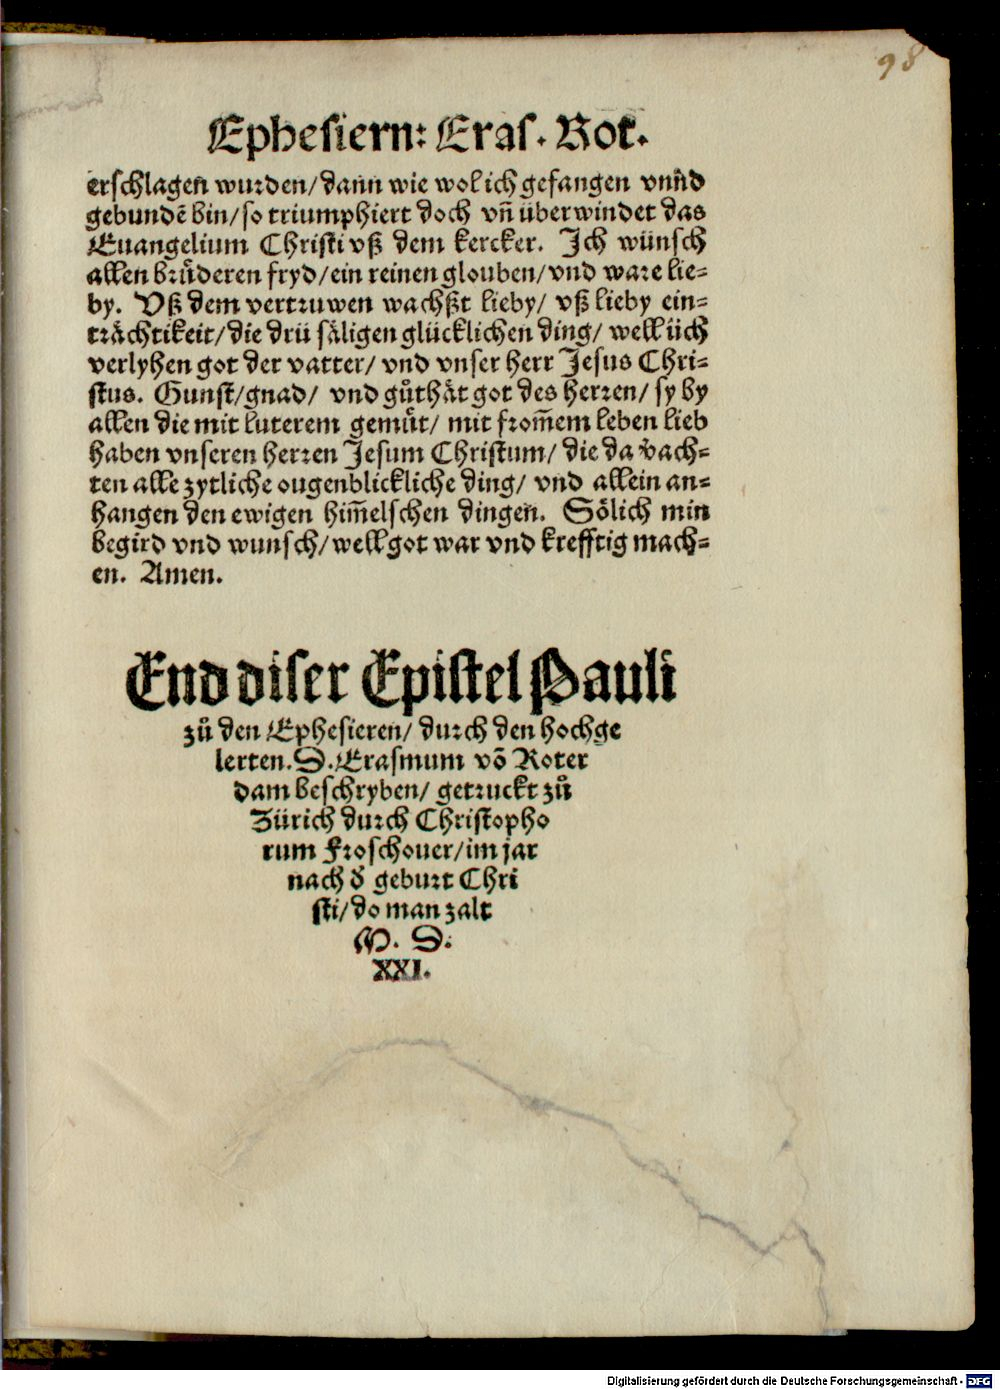 98
Ephesiern: Eras. Rot.
erschlagen wurden/ dann wie wol ich gefangen vnnd
gebundē bin/ so triumphiert doch vñ überwindet das
Euangelium Christi vß dem kercker. Ich wünsch
allen brüderen fryd/ ein reinen glouben/ vnd ware lie⸗
by. Vß dem vertruwen wachßt lieby/ vß lieby ein⸗
trächtikeit/ die drü säligen glücklichen ding/ well üch
verlyhen got der vatter/ vnd vnser herr Jesus Chri⸗
stus. Gunst/ gnad/ vnd gůthät got des herren/ sy by
allen die mit luterem gemüt/ mit from̄em leben lieb
haben vnseren herren Jesum Christum/ die da v̄ach⸗
ten alle zytliche ougenblickliche ding/ vnd allein an⸗
hangen den ewigen him̄elschen dingen. Sölich min
begird vnd wunsch/ well got war vnd krefftig mach⸗
en. Amen.
End diser Epistel Pauli
zů den Ephesieren/ durch den hochge
lerten. D. Erasmum vō Roter
dam beschryben/ getruckt zů
Zürich durch Christopho
rum Froschouer/ im jar
nach d̄ geburt Chri
sti/ do man zalt
M. D.
XXI.
Digitalisierung gefördert durch die Deutsche Forschungsgemeinschaft - DFG